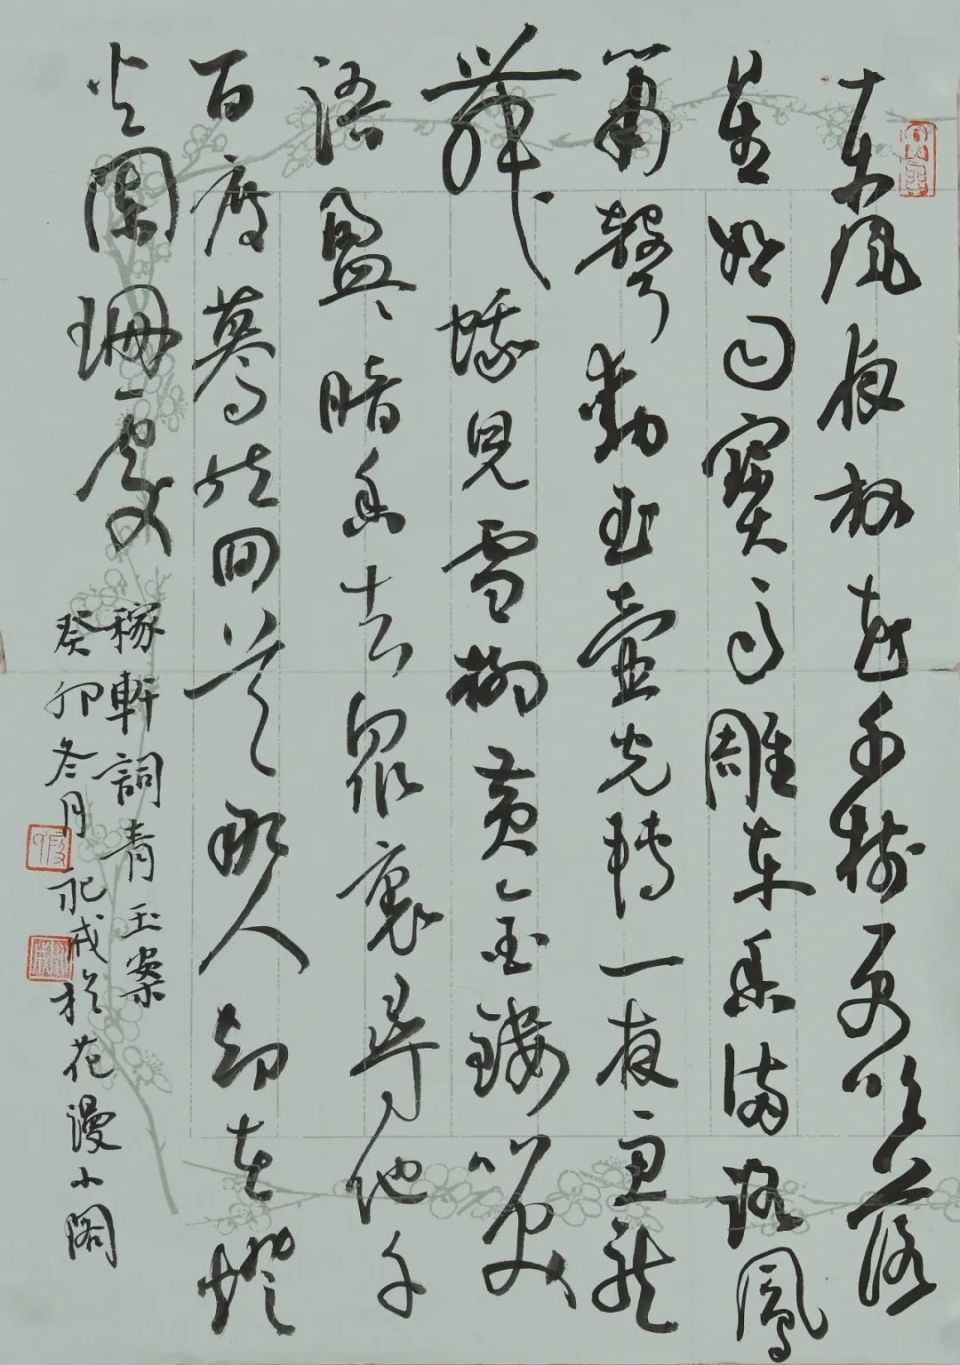 東風夜放花千樹更吹落
星如雨寶馬雕車香滿路鳳
簫聲動玉壺光轉一夜魚龍
舞蛾兒雪柳黃金縷笑
語盈〻暗香去眾裏尋他千
百度驀然回首那人卻在燈
火闌珊處
稼軒詞青玉案
癸卯冬月於花漫小閣